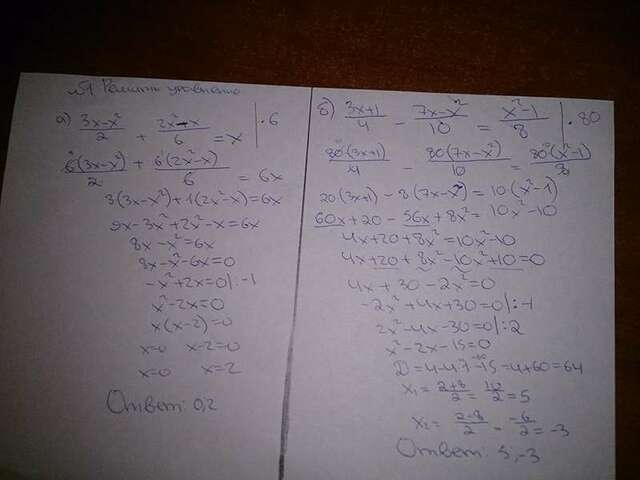 №1 Решить уравнения
а) (3x-x²)/2 + (2x²-x)/6 = x |·6
6(3x-x²)/2 + 6(2x²-x)/6 = 6x
3(3x-x²)+1(2x²-x)=6x
9x-3x²+2x²-x=6x
8x-x²=6x
8x-x²-6x=0
-x²+2x=0|:-1
x²-2x=0
x(x-2)=0
x=0 x-2=0
x=0 x=2
Ответ: 0,2
б) (3x+1)/4 - (7x-x²)/10 = (x²-1)/8 |·80
80·(3x+1)/4 - 80(7x-x²)/10 = 80·(x²-1)/8
20(3x+1)-8(7x-x²)=10(x²-1)
60x+20-56x+8x²=10x²-10
4x+20+8x²=10x²-10
4x+20+8x²-10x²+10=0
4x+30-2x²=0
-2x²+4x+30=0|:-1
2x²-4x-30=0|:2
x²-2x-15=0
=4+60=64
x₁=(2+8)/2=10/2=5
x₂=(2-8)/2=-6/2=-3
Ответ: 5,-3